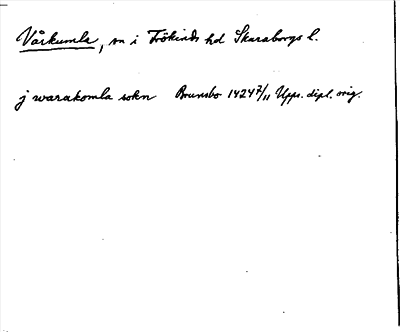 Vårkumla, sn i Frökinds hd Skaraborgs l.
j warakomla sokn Brunsbo 1424 7/11 Upps. dipl. orig.